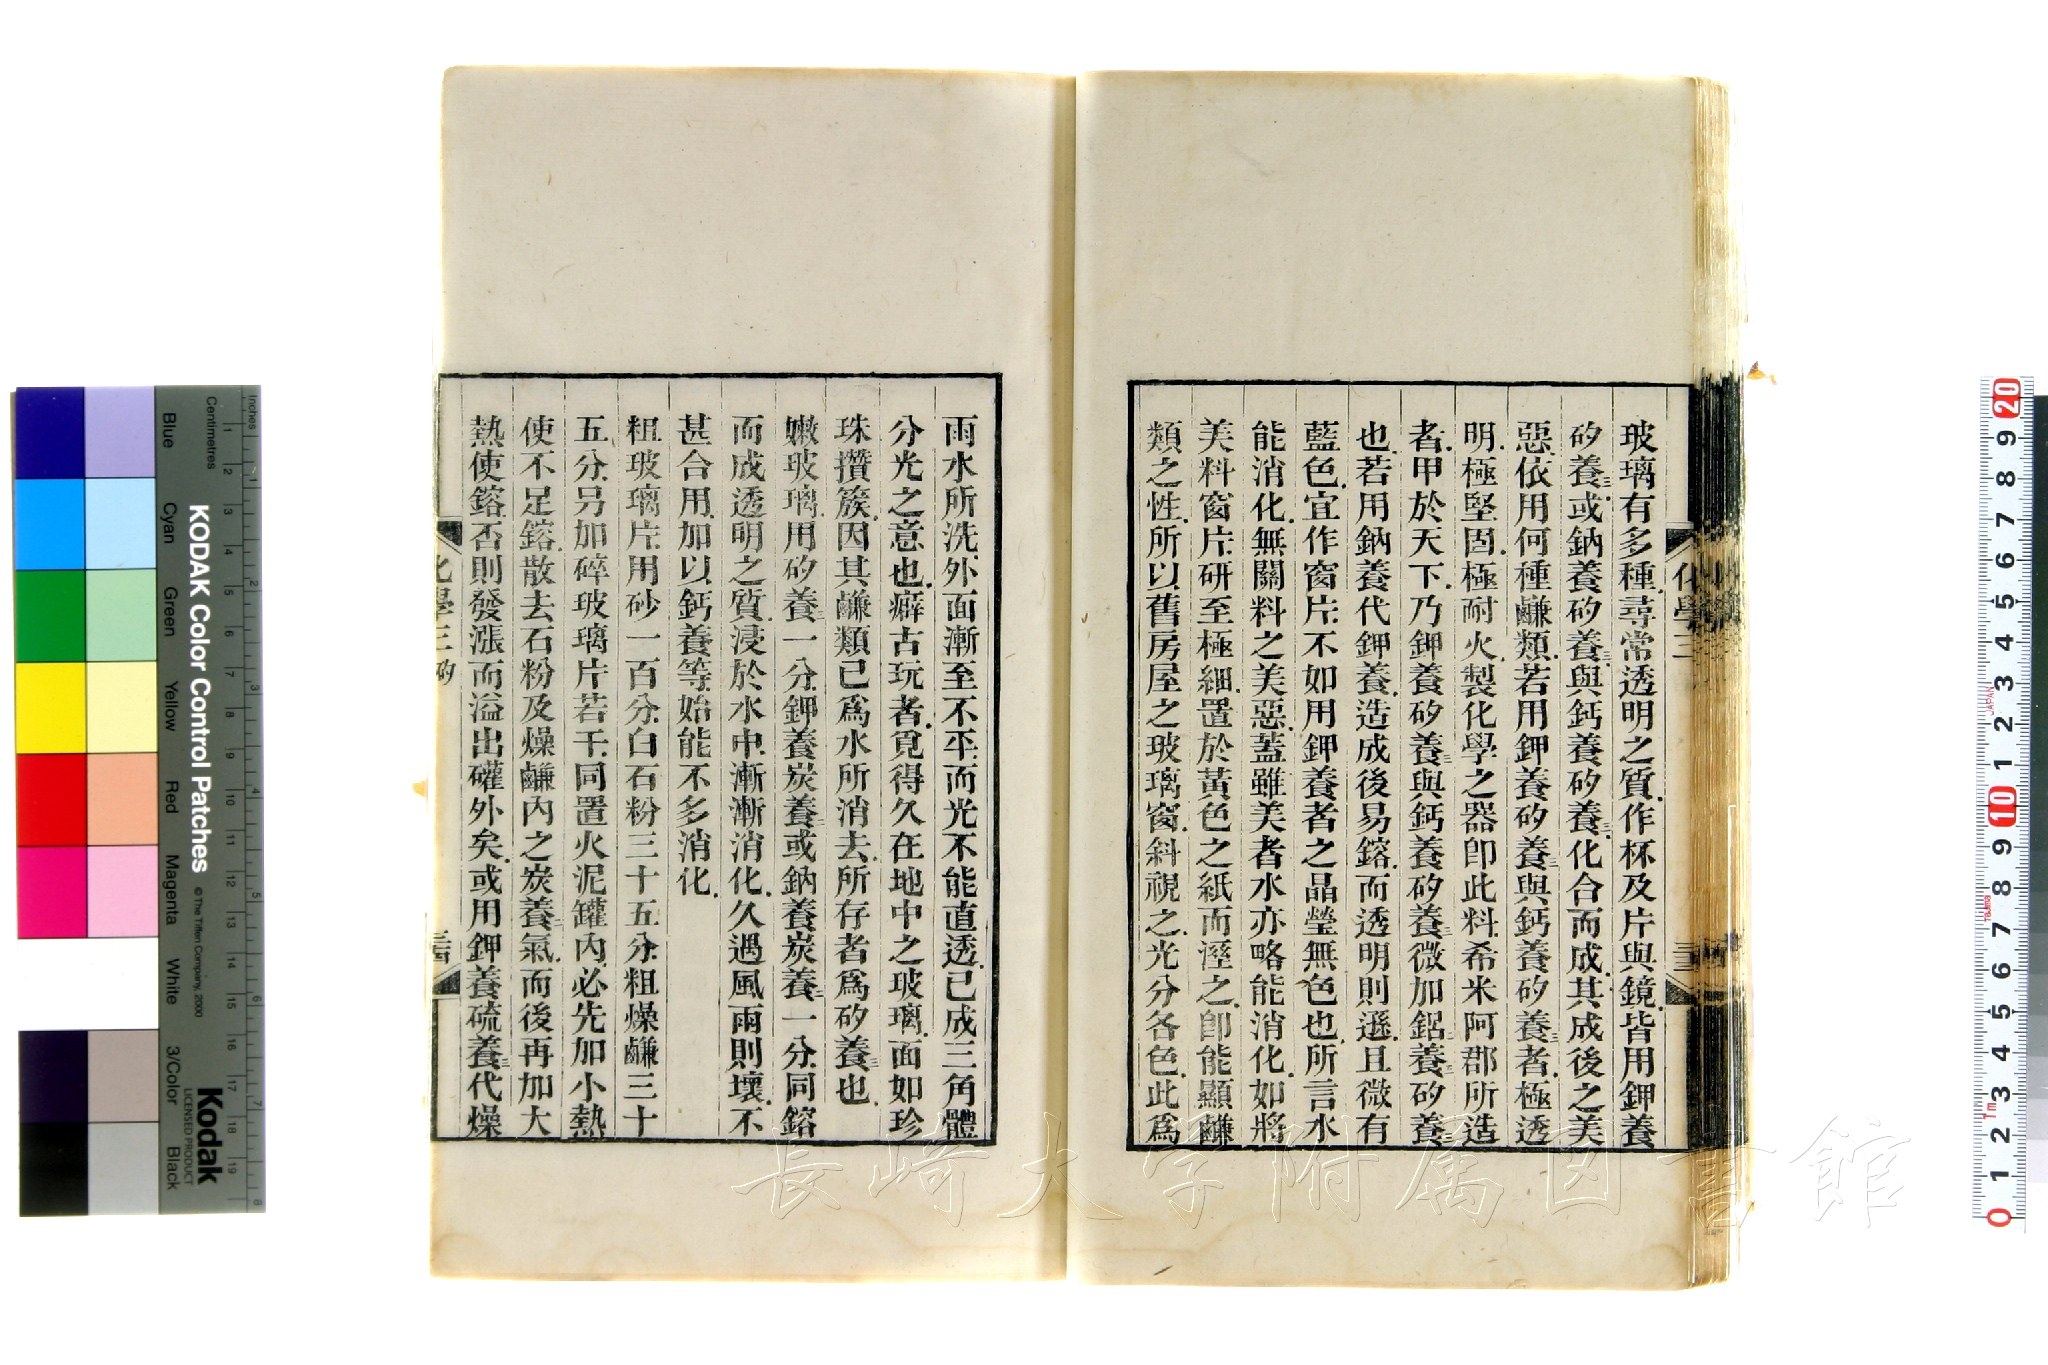 玻璃有多種尋常透明之質作杯及片與鏡皆用鉀養
矽養三或鈉養矽養三與鈣養矽養三化合而成其成後之美
惡依用何種鹻類若用鉀養矽養三與鈣養矽養三者極透
明極堅固極耐火製化學之器卽此料希米阿郡所造
者甲於天下乃鉀養矽養三與鈣養矽養三微加鋁養三矽養三
也若用鈉養代鉀養造成後易鎔而透明則遜且微有
藍色宜作窗片不如用鉀養者之晶瑩無色也所言水
能消化無關料之美惡蓋雖美者水亦略能消化如將
美料窗片研至極細置於黃色之紙而溼之卽能顯鹻
類之性所以舊房屋之玻璃窗斜視之光分各色此爲
化學三
雨水所洗外面漸至不平而光不能直透已成三角體
分光之意也癖古玩者覓得久在地中之玻璃面如珍
珠攢簇因其鹻類已爲水所消去所存者爲矽養三也
嫩玻璃用矽養三一分鉀養炭養二或鈉養炭養二一分同鎔
而成透明之質浸於水中漸漸消化久遇風雨則壞不
甚合用加以鈣養等始能不多消化
粗玻璃片用砂一百分白石粉三十五分粗燥鹻三十
五分另加碎玻璃片若干同置火泥罐內必先加小熱
使不足鎔散去石粉及燥鹻內之炭養二氣而後再加大
熱使鎔否則發漲而溢出罐外矣或用鉀養硫養三代燥
化學三 矽
KODAK Color Control Patches
© The Tiffen Company, 2000
Kodak
LICENSED PRODUCT
Inches
Centimetres
Blue
Cyan
Green
Yellow
Red
Magenta
White
3/Color
Black
JAPAN
長崎大学附属図書館